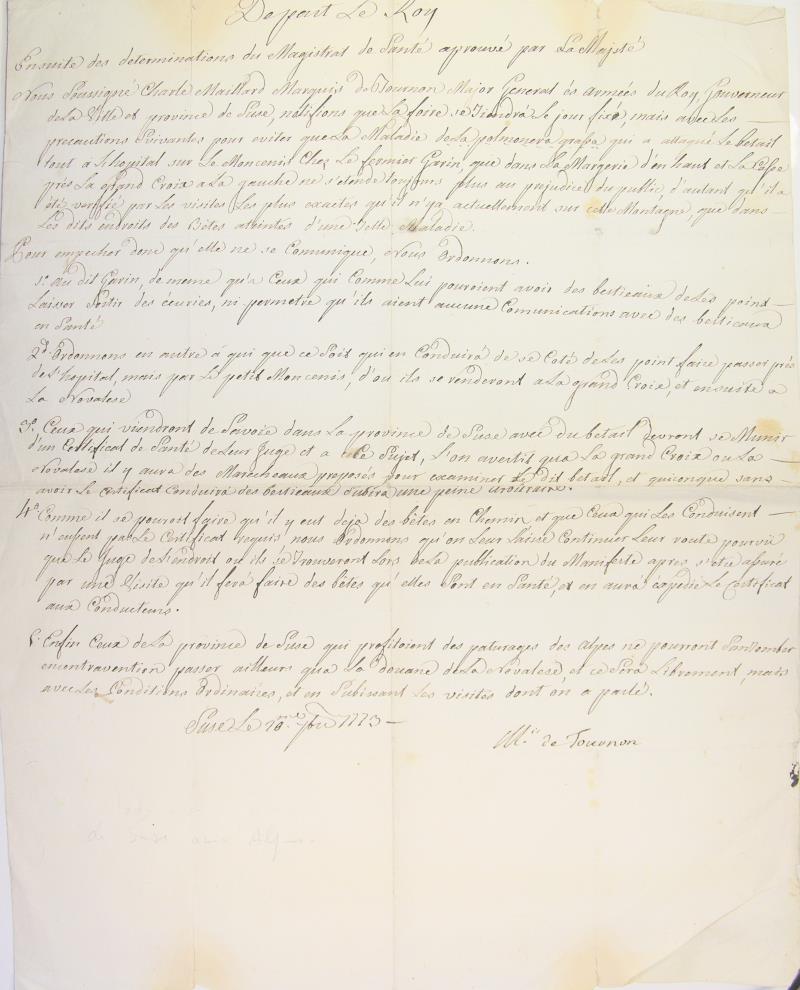 De part Le Roy
Ensuite des determinations du Magistrat de Santé aprouvé par Sa Majesté
Nous Soussigné Charle Maillard Marquis De Tournon Major General és Armées du Roy, Gouverneur
de La Ville et province de Suse, notifions que La foire se Tiendrá Le jour fixé, mais avec Les
precautions Suivantes pour eviter que La Maladie de La polmonera grassa qui a attaqué Le betail
tout á L'hopital sur Le Moncenis Chez Le fermier Garin, que dans La Margerie d'en haut et La
près La grand Croix a La gauche ne s'etende toujours plus au prejudice du public, d'autant qu'il a
été verifié par Les visites Les plus exactes qu'il n'ya actuellement sur cette Montagne, que dans
Les dits endroits des Bêtes atteintes d'une Telle Maladie.
Pour empecher donc qu'elle ne se Comunique, Nous Ordonnons.
1.° Au dit Garin, de meme qu'a Ceux qui Comme Lui pouroient avoir des bestieaux de Les point
Laisser Sortir des écuries, ni permetre qu'ils aient aucune Comunications avec des bestieaux
en Santé
2.d Ordonnons en autre á qui que ce Soit qui en Conduirá de se Coté de Les point faire passer près
de L'hopital, mais par Le petit Moncenis, d'ou ils se renderont a La grand Croix, et ensuite a
La Novalese
3.° Ceux qui viendront de Savoie dans La province de Suse avec du betail devront se Munir
d'un Certificat de Santé de Leur Juge et a ce Sujet, L'on avertit qua La grand Croix ou La
Novalese il y aura des Marecheaux preposés pour examiner Le dit betail, et quiconque sans
avoir Le Certificat Conduira des bestieaux Subira une peine arbitraire.
4.° Comme il se pouroit faire qu'il y eut deja des bêtes en Chemin et que Ceux qui Les Conduisent
n'eussent pas Le Certificat requis nous Ordonnons qu'on Leur Laisse Continuer Leur route pourvú
que Le Juge de L'endroit ou ils se Trouveront Lors de La publication du Manifeste apres s'etre assuré
par une Visite qu'il ferá faire des bêtes qu'elles Sont en Santé, et en aurá expedié Le Certificat
aux Conducteurs.
5.° Enfin Ceux de La province de Suse qui profitoient des paturages des Alpes ne pourront Sans tomber
en contravention passer ailleurs qua La Douane de La Novalese, et ce Sera Librement, mais
avec Les Conditions Ordinaires, et en Subissant Les visites dont on a parlé.
Suse Le 10.me 7bre 1773
M.is de Tournon